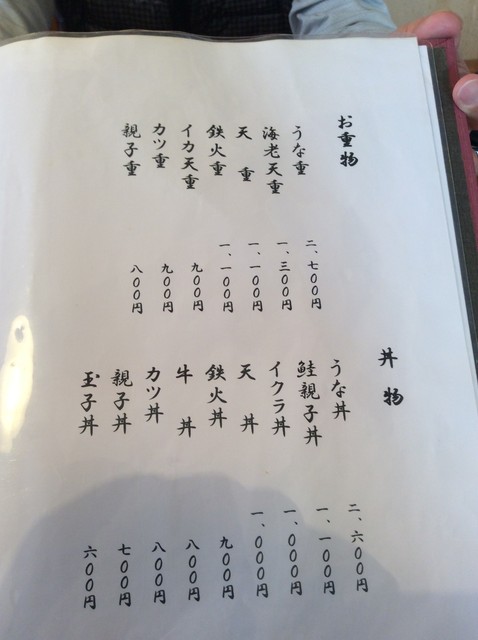 お重物
うな重 二、七〇〇円
海老天重 一、三〇〇円
天重 一、一〇〇円
鉄火重 一、一〇〇円
イカ天重 九〇〇円
カツ重 九〇〇円
親子重 八〇〇円
丼物
うな丼 二、六〇〇円
鮭親子丼 一、一〇〇円
イクラ丼 一、〇〇〇円
天丼 一、〇〇〇円
鉄火丼 九〇〇円
牛丼 八〇〇円
カツ丼 八〇〇円
親子丼 七〇〇円
玉子丼 六〇〇円